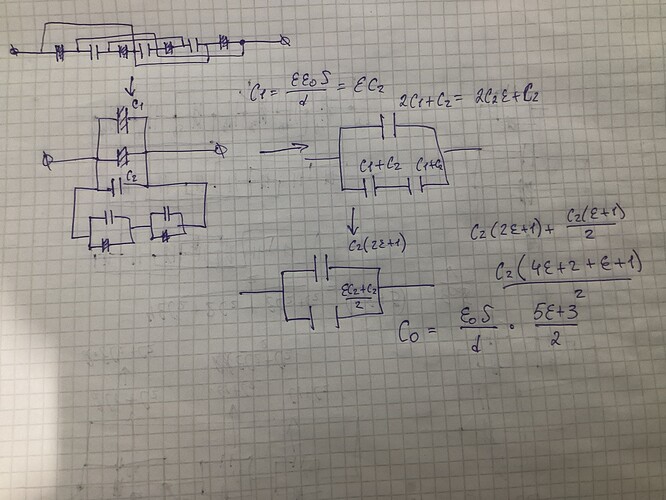 C₁ = εε₀S/d = εC₂
2C₁+C₂ = 2C₂ε+C₂
C₁
C₂
C₁+C₂ C₁+C₂
C₂(2ε+1)
εC₂+C₂/2
C₂(2ε+1) + C₂(ε+1)/2
C₂(4ε+2+ε+1)/2
C₀ = ε₀S/d · 5ε+3/2